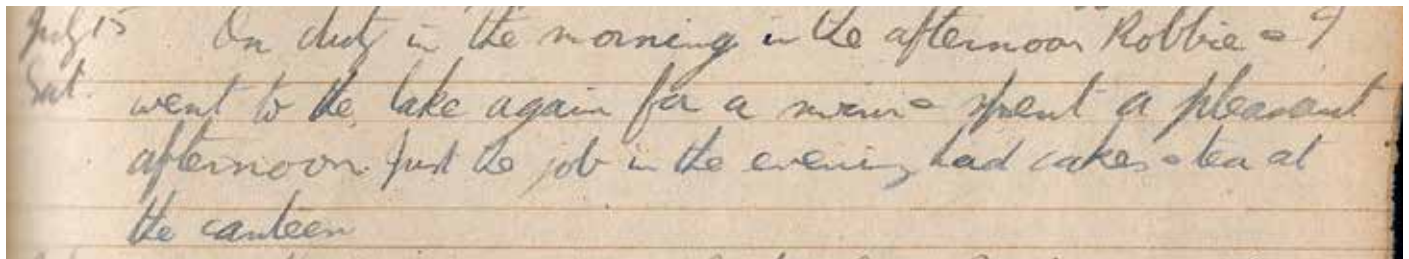 July 15 On duty in the morning in the afternoon Robbie & I
Sat. went to the lake again for a swim & spent a pleasant
afternoon. Just the job in the evening had cakes & tea at
the canteen